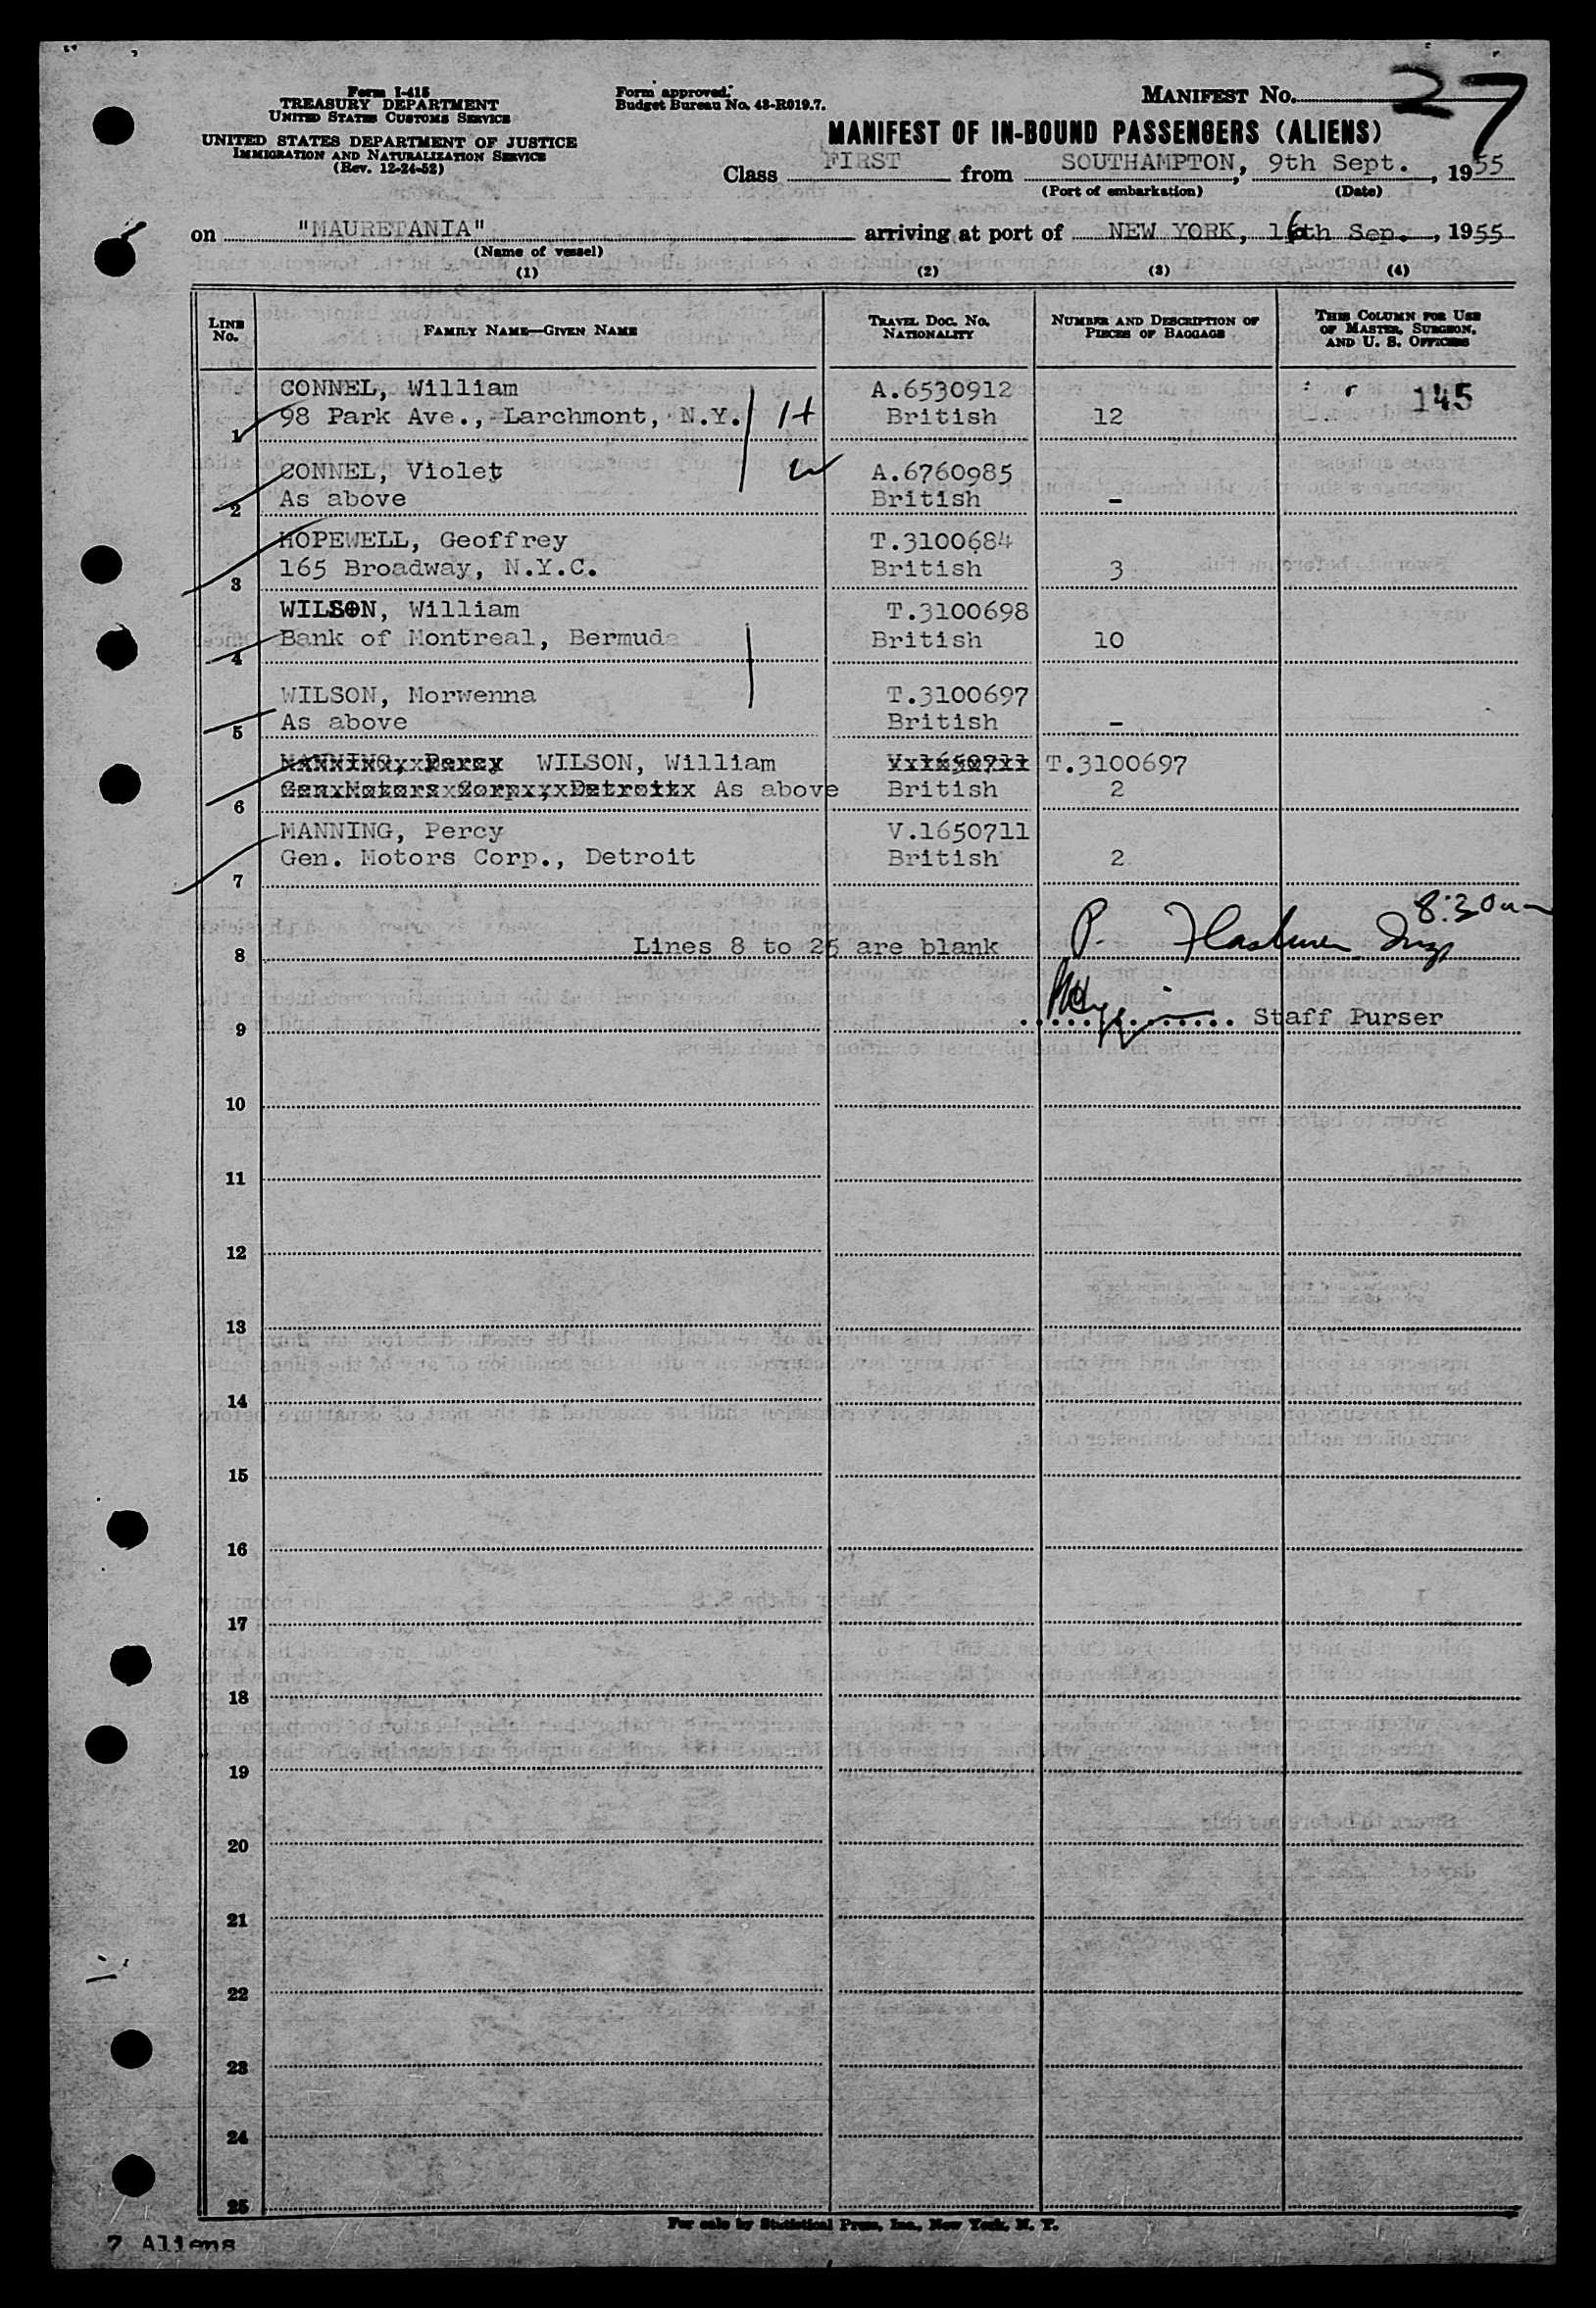 Form I-415
TREASURY DEPARTMENT
UNITED STATES CUSTOMS SERVICE
UNITED STATES DEPARTMENT OF JUSTICE
IMMIGRATION AND NATURALIZATION SERVICE
(Rev. 12-24-52)
Form approved.
Budget Bureau No. 43-R019.7.
MANIFEST No. 27
MANIFEST OF IN-BOUND PASSENGERS (ALIENS)
Class FIRST from SOUTHAMPTON, 9th Sept., 1955
(Port of embarkation) (Date)
on "MAURETANIA" arriving at port of NEW YORK, 16th Sep., 1955
(Name of vessel)
(1) (2) (3) (4)
LINE No. FAMILY NAME—GIVEN NAME TRAVEL DOC. NO. NATIONALITY NUMBER AND DESCRIPTION OF PIECES OF BAGGAGE THIS COLUMN FOR USE OF MASTER, SURGEON, AND U. S. OFFICERS
CONNEL, William A.6530912 145
1 98 Park Ave., Larchmont, N.Y. H British 12
CONNEL, Violet W A.6760985
2 As above British -
HOPEWELL, Geoffrey T.3100684
3 165 Broadway, N.Y.C. British 3
WILSON, William T.3100698
4 Bank of Montreal, Bermuda British 10
WILSON, Morwenna T.3100697
5 As above British -
MANNING, Percy WILSON, William V.1650711 T.3100697
6 Gen Motors Corp., Detroit As above British 2
MANNING, Percy V.1650711
7 Gen. Motors Corp., Detroit British 2
8:30am
8 Lines 8 to 25 are blank P.
9 Staff Purser
10
11
12
13
14
15
16
17
18
19
20
21
22
23
24
25
For sale by Statistical Press, Inc., New York, N. Y.
7 Aliens